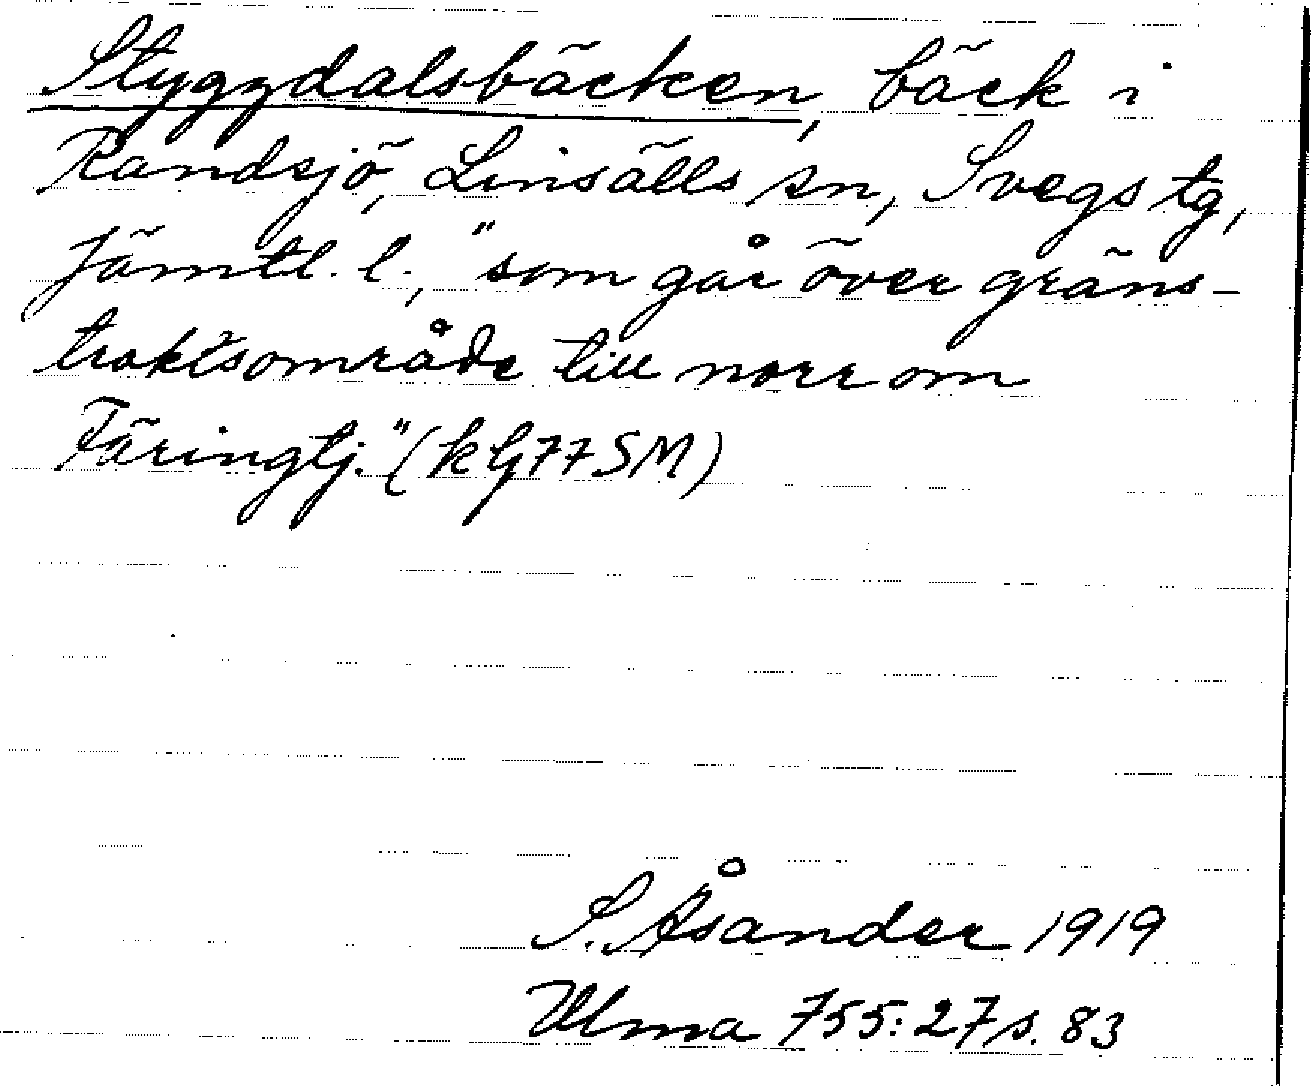 Styggdalsbäcken, bäck i
Randsjö, Linsälls sn, Svegs tg,
Jämtl. l., "som går över gräns-
traktsområde till norr om
Täringtj." (k G77SM)
S. Åsander 1919
Ulma 755:27 s. 83